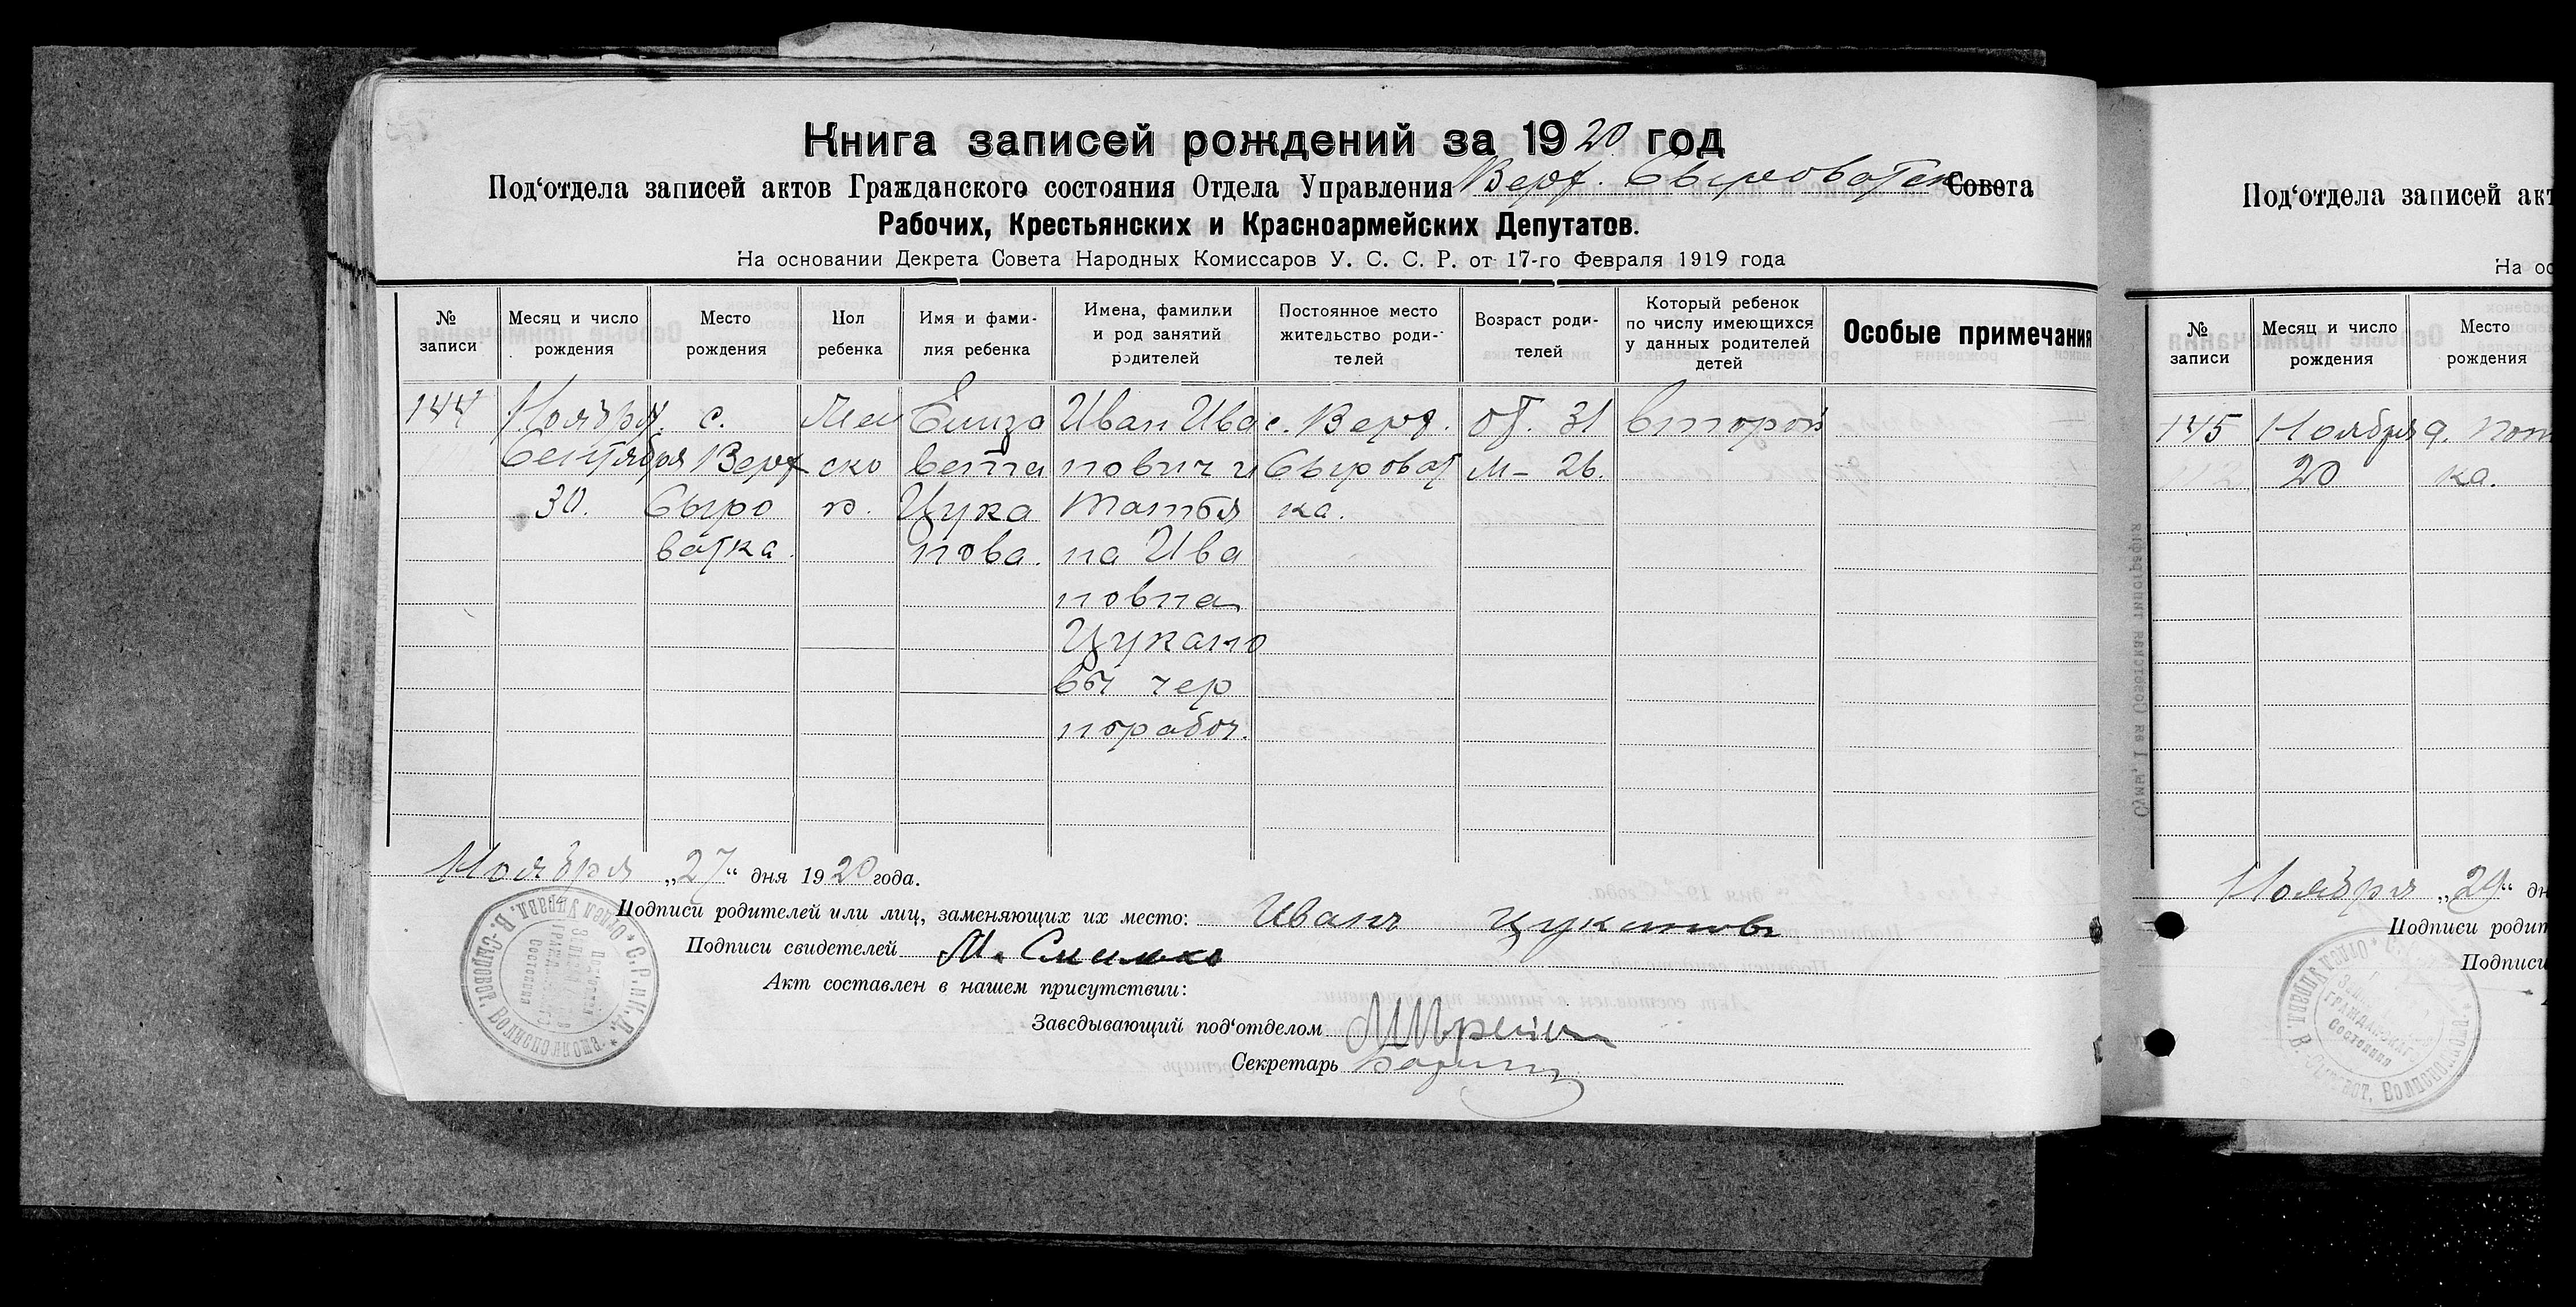 Книга записей рождений за 1920 год
Под‘отдела записей актов Гражданского состояния Отдела Управления Верх. Сыроватск Совета
Рабочих, Крестьянских и Красноармейских Депутатов.
На основании Декрета Совета Народных Комиссаров У. С. С. Р. от 17-го Февраля 1919 года
№ записи
Месяц и число рождения
Место рождения
Пол ребенка
Имя и фами-
лия ребенка
Имена, фамилии
и род занятий
родителей
Постоянное место
жительство роди-
телей
Возраст роди-
телей
Который ребенок
по числу имеющихся
у данных родителей
детей
Особые примечания
144
Ноября
Сентября
30.
с.
Верх
Сыро
ватка.
Жен
ско
й.
Елиза
вета
Цука
нова.
Иван Ива
нович и
Татья
на Ива
новна
Цукано
вы чер
норабоч.
с. Верх.
Сыроват
ка.
от. 31
м- 26.
второй
Ноября „27“ дня 1920 года.
Подписи родителей или лиц, заменяющих их место: Иванъ Цукановъ
Подписи свидетелей М.
Акт составлен в нашем присутствии:
Заведывающий под‘отделом
Секретарь
* С. Р. и К. Д. *
Отдел Управл. В.-Сыроват. Волисполкома
Под‘отдел
Записей
Состояния
Под‘отдела записей акт
На ос
№ записи
Месяц и число рождения
Место рождения
145
Ноября
20
ка.
Сумы, 1-ая Советская типография
Ноября „29“ дн
Подписи родит
Подписи
Отдел Управл. В. Сыроват. Волисполкома
Гражданского
Состояния